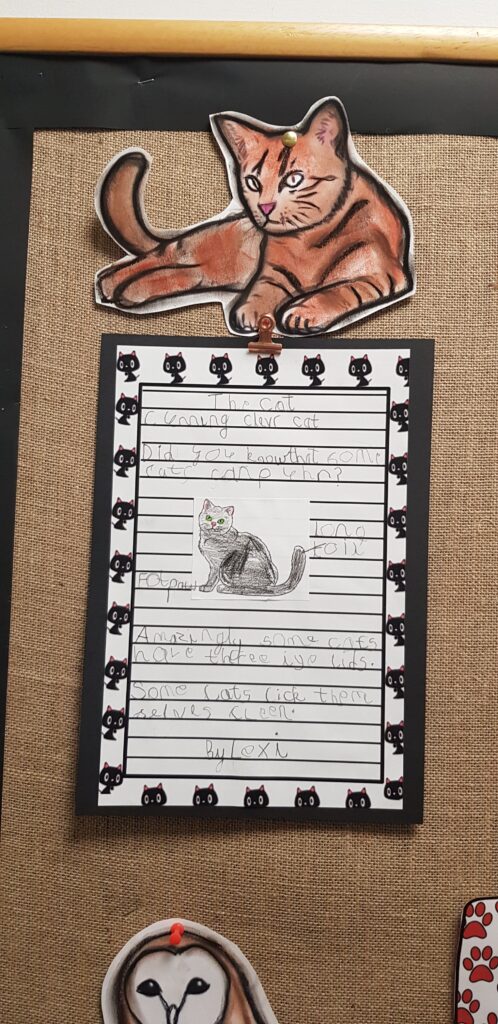 The cat
cunning clevr cat
Did you knowthat some
cats can
long
tail
Fat paw
Amazingly some cats
have three iye lids.
Some cats lick them
selves cleen.
By Lexi